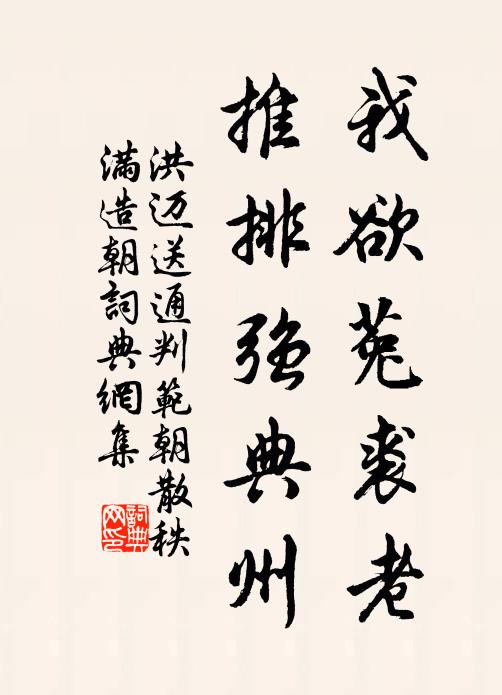 我欲菟裘老
推排强典州
洪迈送通判範朝散秩
滿造朝詞典網集
詞典网印